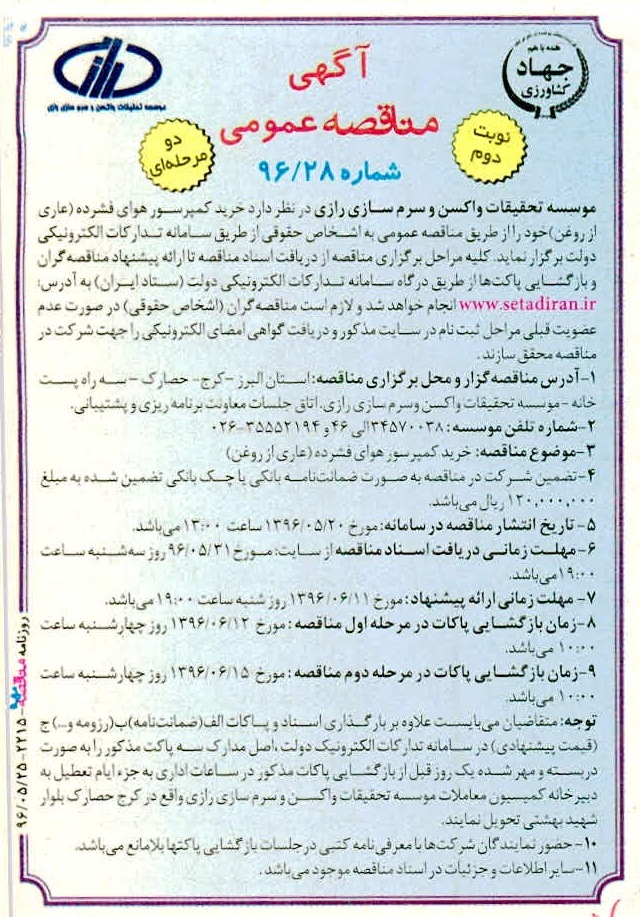 همه با هم
جهاد
کشاورزی
موسسه تحقیقات واکسن و سرم سازی رازی
آگهی
مناقصه عمومی
شماره ۹۶/۲۸
نوبت
دوم
دو
مرحله‌ای
موسسه تحقیقات واکسن و سرم سازی رازی در نظر دارد خرید کمپرسور هوای فشرده (عاری
از روغن) خود را از طریق مناقصه عمومی به اشخاص حقوقی از طریق سامانه تدارکات الکترونیکی
دولت برگزار نماید. کلیه مراحل برگزاری مناقصه از دریافت اسناد مناقصه تا ارائه پیشنهاد مناقصه‌گران
و بازگشایی پاکت‌ها از طریق درگاه سامانه تدارکات الکترونیکی دولت (ستاد ایران) به آدرس:
www.setadiran.ir انجام خواهد شد و لازم است مناقصه‌گران (اشخاص حقوقی) در صورت عدم
عضویت قبلی مراحل ثبت نام در سایت مذکور و دریافت گواهی امضای الکترونیکی را جهت شرکت در
مناقصه محقق سازند.
۱-آدرس مناقصه‌گزار و محل برگزاری مناقصه: استان البرز -کرج- حصارک -سه راه پست
خانه -موسسه تحقیقات واکسن وسرم سازی رازی. اتاق جلسات معاونت برنامه ریزی و پشتیبانی.
۲-شماره تلفن موسسه: ۳۴۵۷۰۰۳۸الی ۴۶ و ۳۵۵۵۲۱۹۴-۰۲۶
۳-موضوع مناقصه: خرید کمپرسور هوای فشرده (عاری از روغن)
۴-تضمین شرکت در مناقصه به صورت ضمانت‌نامه بانکی یا چک بانکی تضمین شده به مبلغ
۱۲۰,۰۰۰,۰۰۰ ریال می‌باشد.
۵- تاریخ انتشار مناقصه در سامانه: مورخ ۱۳۹۶/۰۵/۲۰ ساعت ۱۳:۰۰ می‌باشد.
۶-مهلت زمانی دریافت اسناد مناقصه از سایت: مورخ ۹۶/۰۵/۳۱ روز سه‌شنبه ساعت
۱۹:۰۰ می‌باشد.
۷- مهلت زمانی ارائه پیشنهاد: مورخ ۱۳۹۶/۰۶/۱۱ روز شنبه ساعت ۱۹:۰۰ می‌باشد.
۸-زمان بازگشایی پاکات در مرحله اول مناقصه : مورخ ۱۳۹۶/۰۶/۱۲ روز چهارشنبه ساعت
۱۰:۰۰ می‌باشد.
۹-زمان بازگشایی پاکات در مرحله دوم مناقصه : مورخ ۱۳۹۶/۰۶/۱۵ روز چهارشنبه ساعت
۱۰:۰۰ می‌باشد.
توجه: متقاضیان می‌بایست علاوه بر بارگذاری اسناد و پاکات الف(ضمانت‌نامه)ب(رزومه و...) ج
(قیمت پیشنهادی) در سامانه تدارکات الکترونیک دولت، اصل مدارک سه پاکت مذکور را به صورت
دربسته و مهر شده یک روز قبل از بازگشایی پاکات مذکور در ساعات اداری به جزء ایام تعطیل به
دبیرخانه کمیسیون معاملات موسسه تحقیقات واکسن و سرم سازی رازی واقع در کرج حصارک بلوار
شهید بهشتی تحویل نمایند.
۱۰-حضور نمایندگان شرکت‌ها با معرفی‌نامه کتبی در جلسات بازگشایی پاکتها بلامانع می‌باشد.
۱۱-سایر اطلاعات و جزئیات در اسناد مناقصه موجود می‌باشد.
روزنامه مناقصه -۲۲۱۵-۹۶/۰۵/۲۵